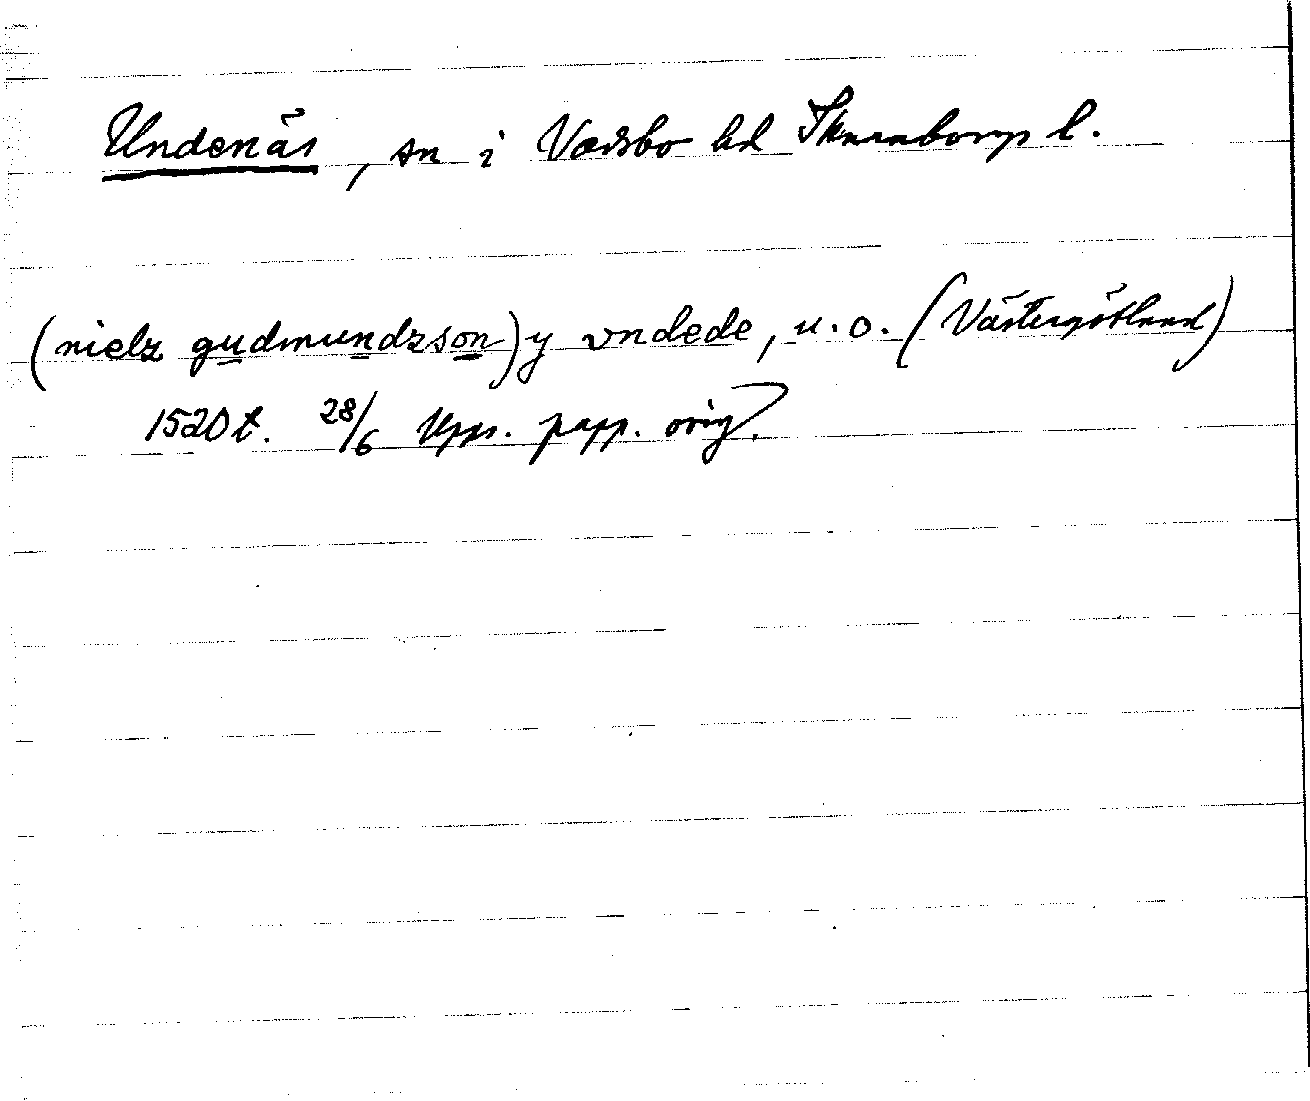 Undenäs, sn i Vadsbo hd Skaraborgs l.
(nielz gudmundzson) y vndede, u. o. (Västergötland)
1520 t. 28/6 Upps. papp. orig.